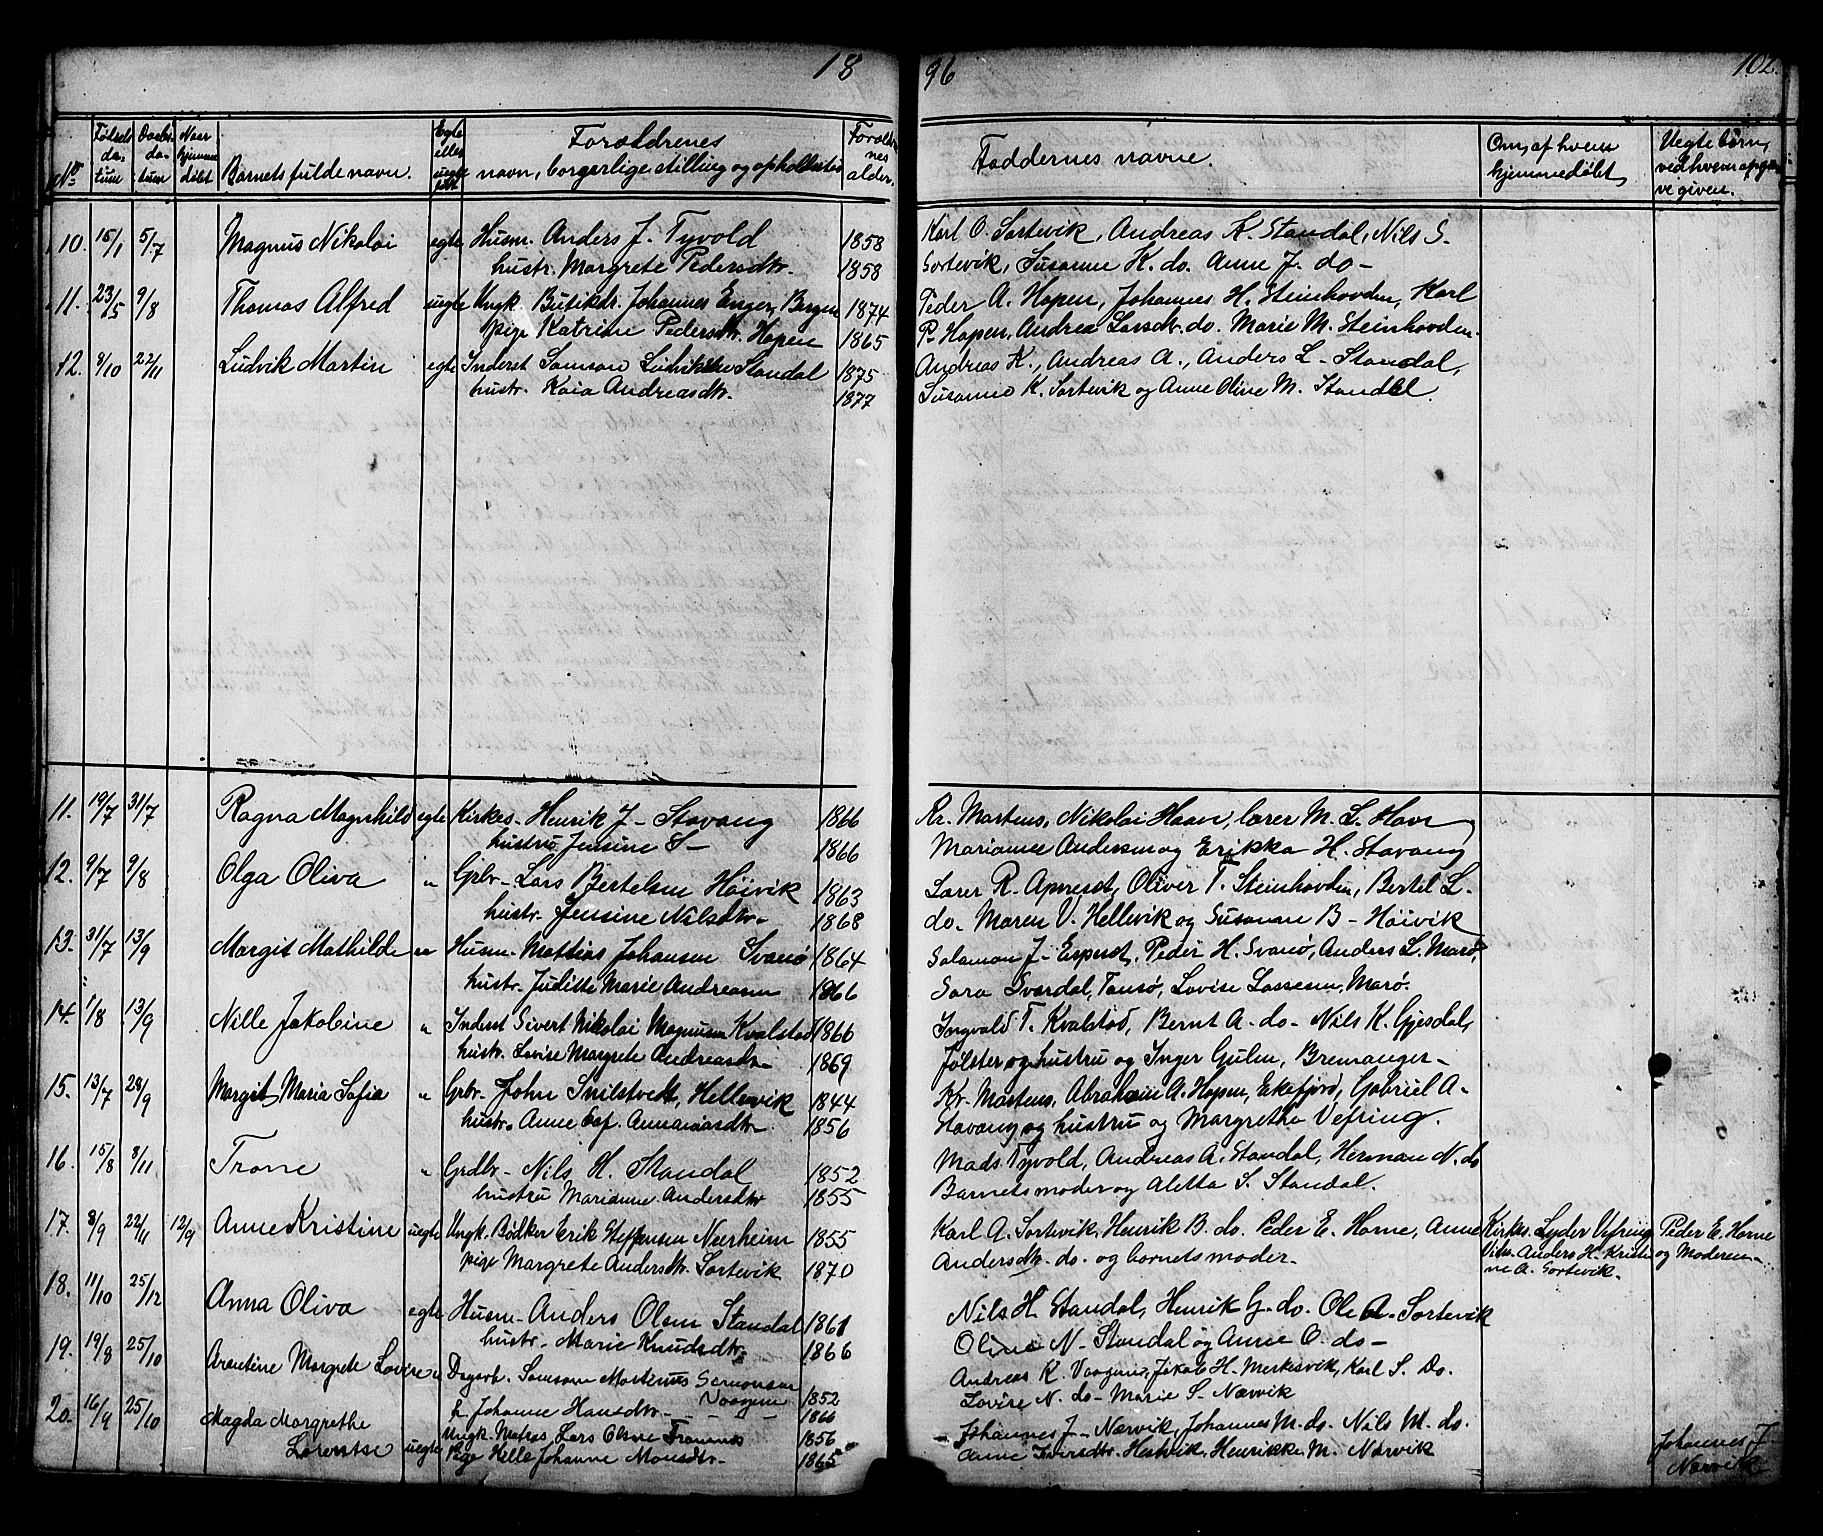 18
96
102.
No
Fødsels da- tum
Daabs- da- tum
Naar hjemme døbt
Barnets fulde navn.
Egte eller uegte født
Forældrenes navn, borgerlige stilling og opholdssted
Foræld- nes alder.
Faddernes navne.
Om, af hvem hjemmedøbt,
Uegte børn, ved hvem opgave given.
10. 15/1 5/7 Magnus Nikolai egte Husm. Anders J. Tyvold 1858
hustr. Margrete Pedersdtr. 1858
Karl O. Sortevik, Andreas K. Standal, Nils S.
Sortevik, Susanne K. do. Anne J. do-
11. 23/5 9/8 Thomas Alfred uegte Ungk. Butikdr. Johannes Enger, Bergen 1874
pige Katrine Pedersdtr. Hopen 1865
Peder A. Hopen, Johannes H. Steinhovden, Karl
P. Hopen, Andrea Larsdtr. do. Marie M. Steinhovden.
12. 8/10 22/11 Ludvik Martin egte Inderst Samson Standal 1875
hustr. Kaia Andreasdtr. 1877
Andreas K., Andreas A., Anders L. Standal,
Susanne K. Sortevik og Anne Oline M. Standal.
11. 19/7 31/7 Ragna Magnhild egte Kirkes- Henrik J- Stavang 1866
hustru Jensine S- 1866
Kr. Martens, Nikolai Haav, lærer M. L. Hovr
Marianne Andersen og Erikka H. Stavang
12. 9/7 9/8 Olga Oliva " Gpbr- Lars Bertelsen Høivik 1863
hustr. Jensine Nilsdtr- 1868
Lærer R. Oliver T. Steinhovden, Bertel L-
do. Maren V. Hellevik og Susanne B- Høivik
13. 31/7 13/9 Margit Mathilde " Husm- Mathias Johansen Svanø 1864
hustr. Juditte Marie Andreasen 1866
Salamon J- Espesdt, Peder H. Svanø, Anders L. Marø,
Sara Svardal, Tansø, Lovise Lassesen, Marø.
14. 1/8 13/9 Nille Jakobine " Inderst Sivert Nikolai Magnusen Kvalstad 1866
hustr. Lovise Margrete Andreasdtr- 1869
Ingvald T. Kvalstad, Bernt A- do- Nils K. Gjesdal,
Jølster og hustru og Inger Gulen, Bremanger-
15. 13/7 28/9 Margit Maria Sofia " Gpbr- John Snilstvedt, Hellevik 1844
hustr. Anne Annaniasdtr- 1856
Kr. Martens, Abraham A. Hopen, Eikefjord, Gabriel A-
Stavang og hustru og Margrethe Vefring.
16. 15/8 8/11 Trone " Grdbr- Nils H. Standal 1852
hustru Marianne Andersdtr 1855
Mads Tyvold, Andreas A. Standal, Herman N. do
Barnets moder og Aletta S. Standal.
17. 8/9 22/11 12/9 Anne Kristine uegte Ungk. Bødker Erik Steffensen Neerheim 1855
pige Margrete Andersdtr. Sortevik 1870
Karl A. Sortevik, Henrik B. do. Peder E. Horne, Anne
Andersdtr. do. og barnets moder.
Kirkes. Lyder Vefring
Vidn. Anders H. Kristi-
ne A. Sortevik.
Peder E. Horne
og Moderen
18. 11/10 25/12 Anna Oliva egte Husm- Anders Olsen Standal 1861
hustr. Marie Knudsdtr. 1866
Nils H. Standal, Henrik G- do. Ole A- Sortevik
Oline N- Standal og Anne O. do-
19. 19/8 25/10 Arentine Margrete Lovise " Dagarb. Samson Mortenus Simonsen
Vaagene 1852
h. Johanne Hansdtr- 1866
Andreas K. Vaagene, Jakob H. Merkesvik, Karl S. Do.
Lovise N. do- Marie S- Nærvik
20. 16/9 25/10 Magda Margrethe
Lorentse uegte Ungk. Matros Lars Olsen Tromnes 1856
Pige Helle Johanne Monsdtr. 1865
Johannes J- Nærvik, Johannes M. do. Nils M. do.
Anne Iversdtr. Henrikke M. Nærvik
Johannes J.
Nærvik